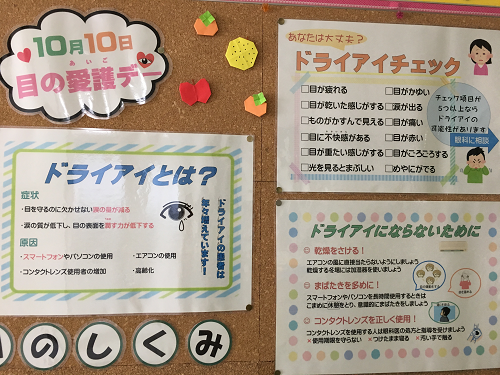 10月10日
あいご
目の愛護デー
ドライアイとは？
症状
・目を守るのに欠かせない涙の量が減る
・涙の質が低下し、目の表面を潤す力が低下する
原因
・スマートフォンやパソコンの使用
・エアコンの使用
・コンタクトレンズ使用者の増加
・高齢化
ドライアイの患者は
年々増えています！
のしくみ
あなたは大丈夫？
ドライアイチェック
□目が疲れる
□目がかゆい
□目が乾いた感じがする
□涙が出る
□ものがかすんで見える
□目が痛い
□目に不快感がある
□目が赤い
□目が重たい感じがする
□目がごろごろする
□光を見るとまぶしい
□めやにがでる
チェック項目が
５つ以上なら
ドライアイの
可能性があります
眼科に相談
ドライアイにならないために
乾燥をさける！
エアコンの風に直接当たらないようにしましょう
乾燥する冬場には加湿器を使いましょう
まばたきを多めに！
スマートフォンやパソコンを長時間使用するときは
こまめに休憩をとり、意識的にまばたきをしましょう
コンタクトレンズを正しく使用！
コンタクトレンズを使用する人は眼科医の処方と指導を受けましょう
×使用期限を守らない ×つけたまま寝る ×汚い手で触る